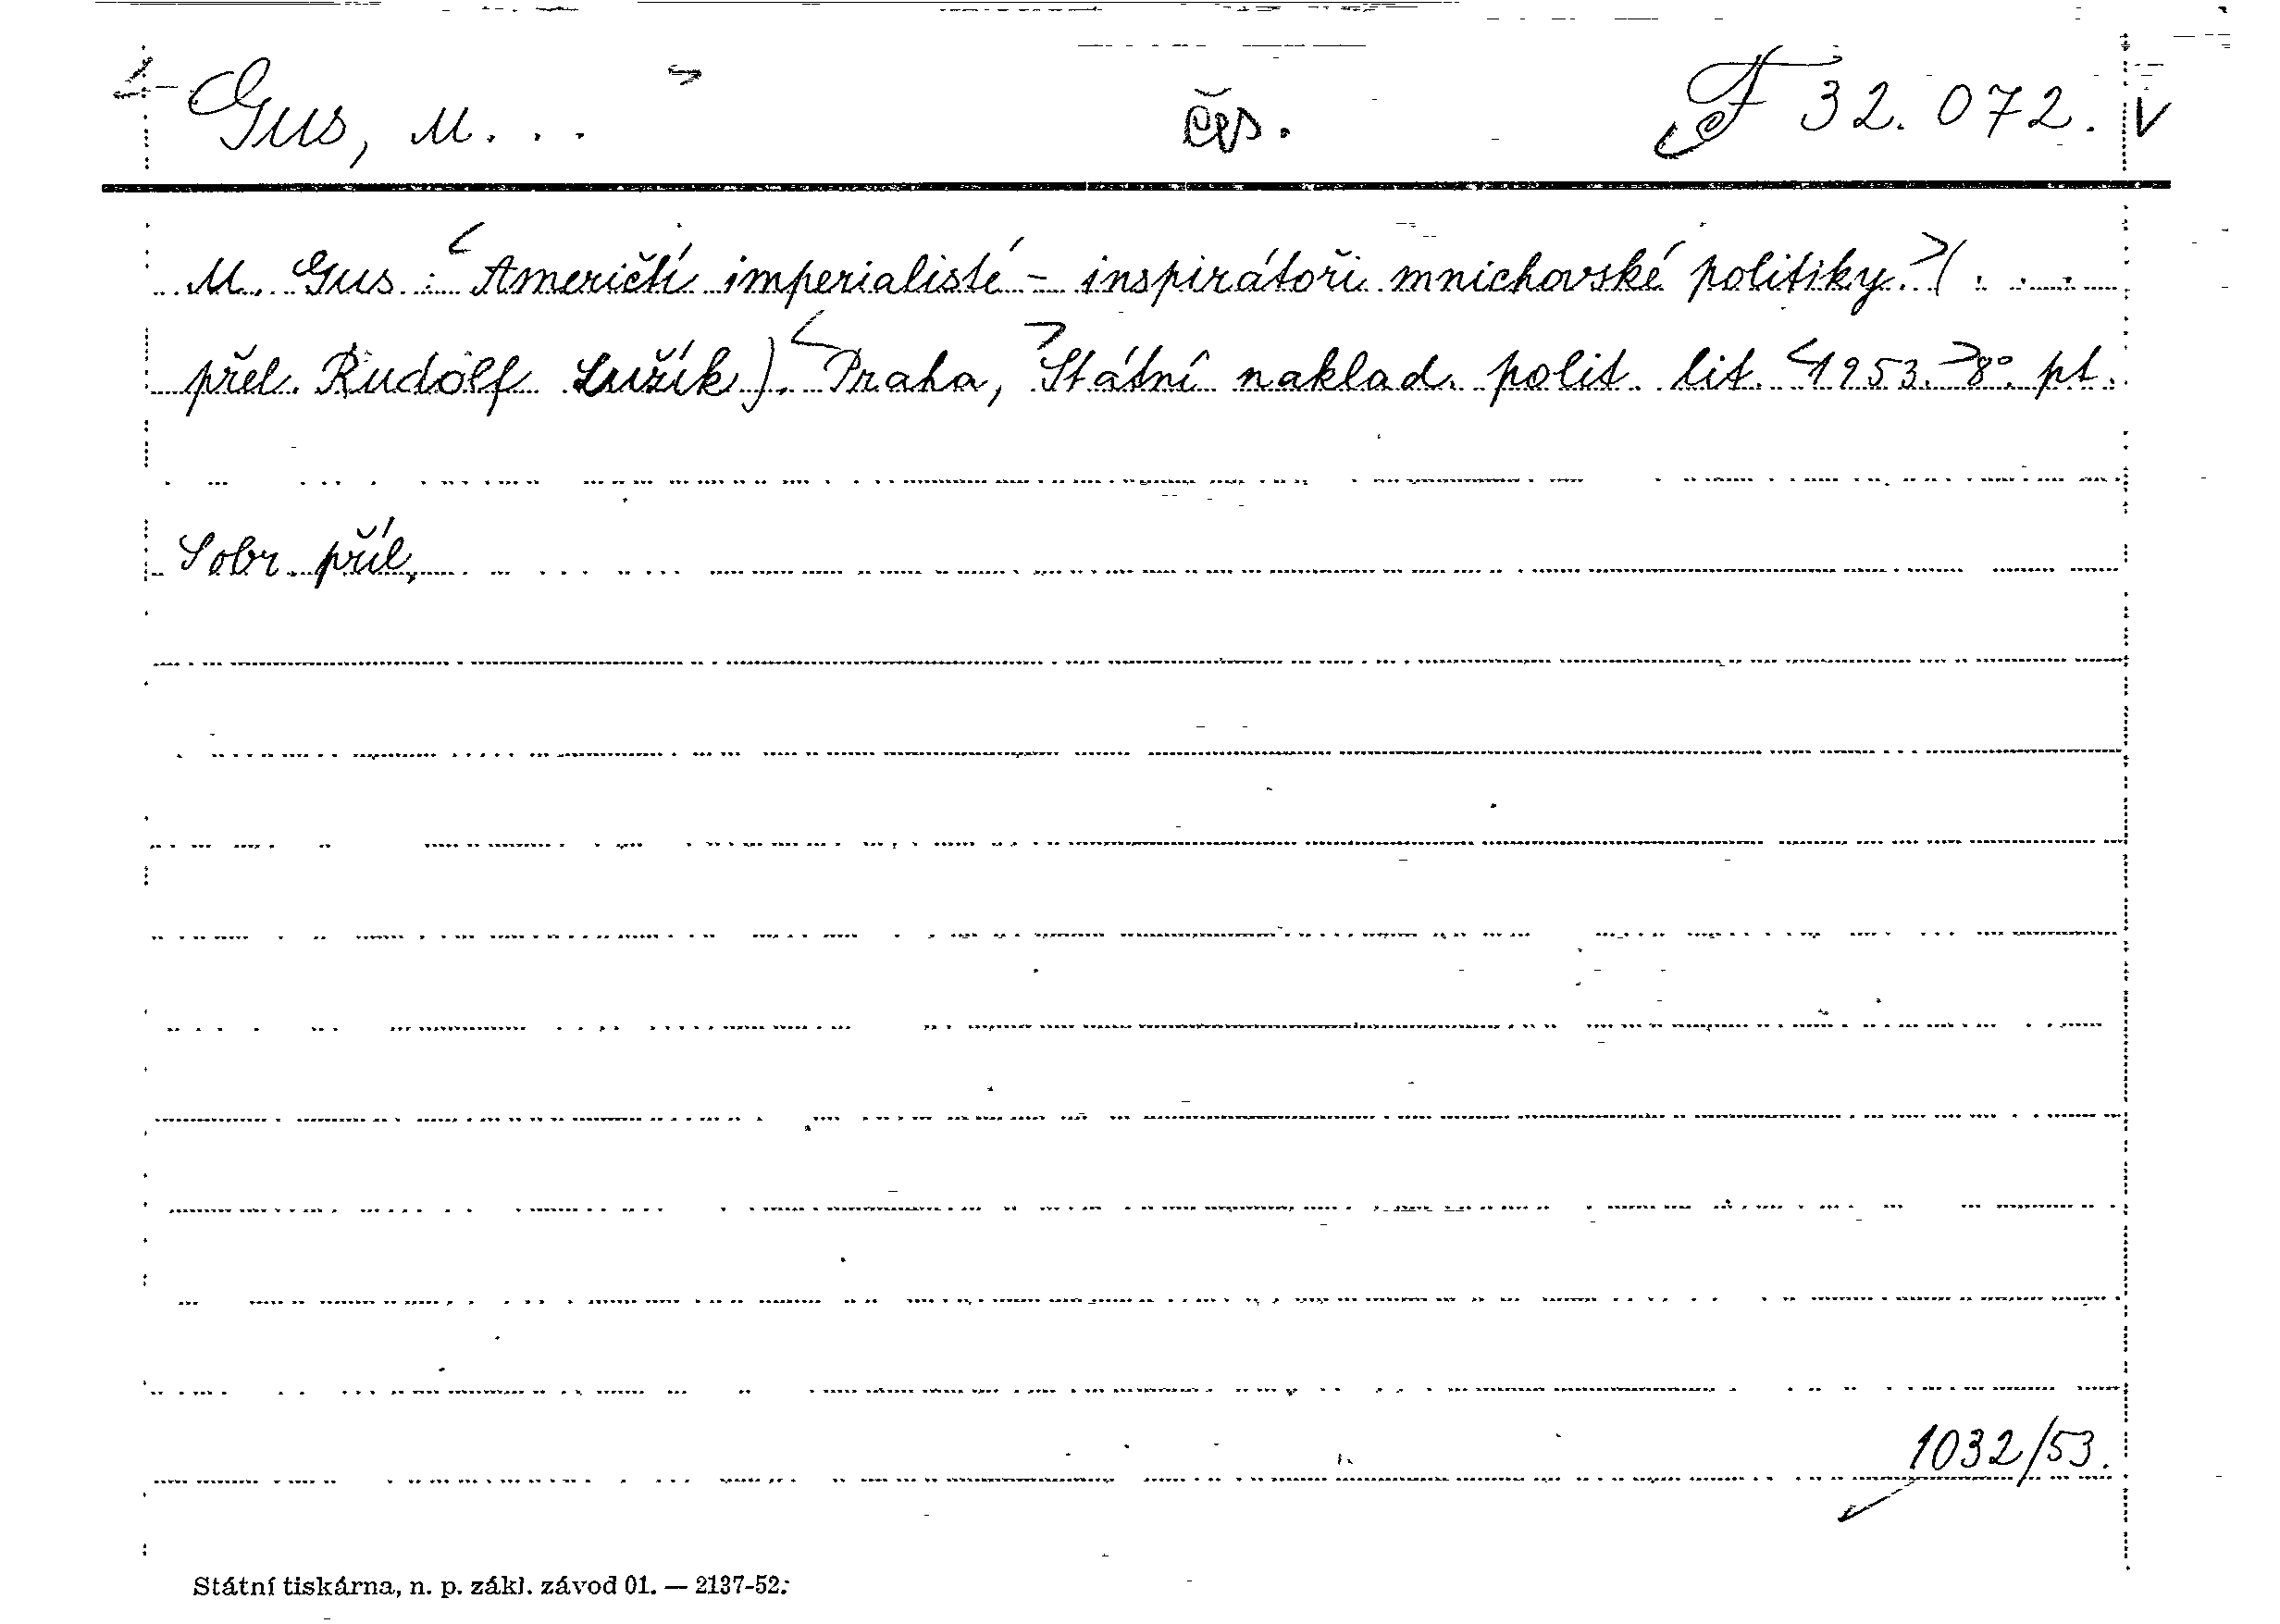 Gus, M. . . čes. F 32.072. V
M. Gus : <Američtí imperialisté - inspirátoři mnichovské politiky.>( . . .
přel. Rudolf Lužík). <Praha,> Státní naklad. polit. lit. <1953.> 8°. pt.
Sobr. příl.
1032/53.
Státní tiskárna, n. p. zákl. závod 01. — 2137-52.